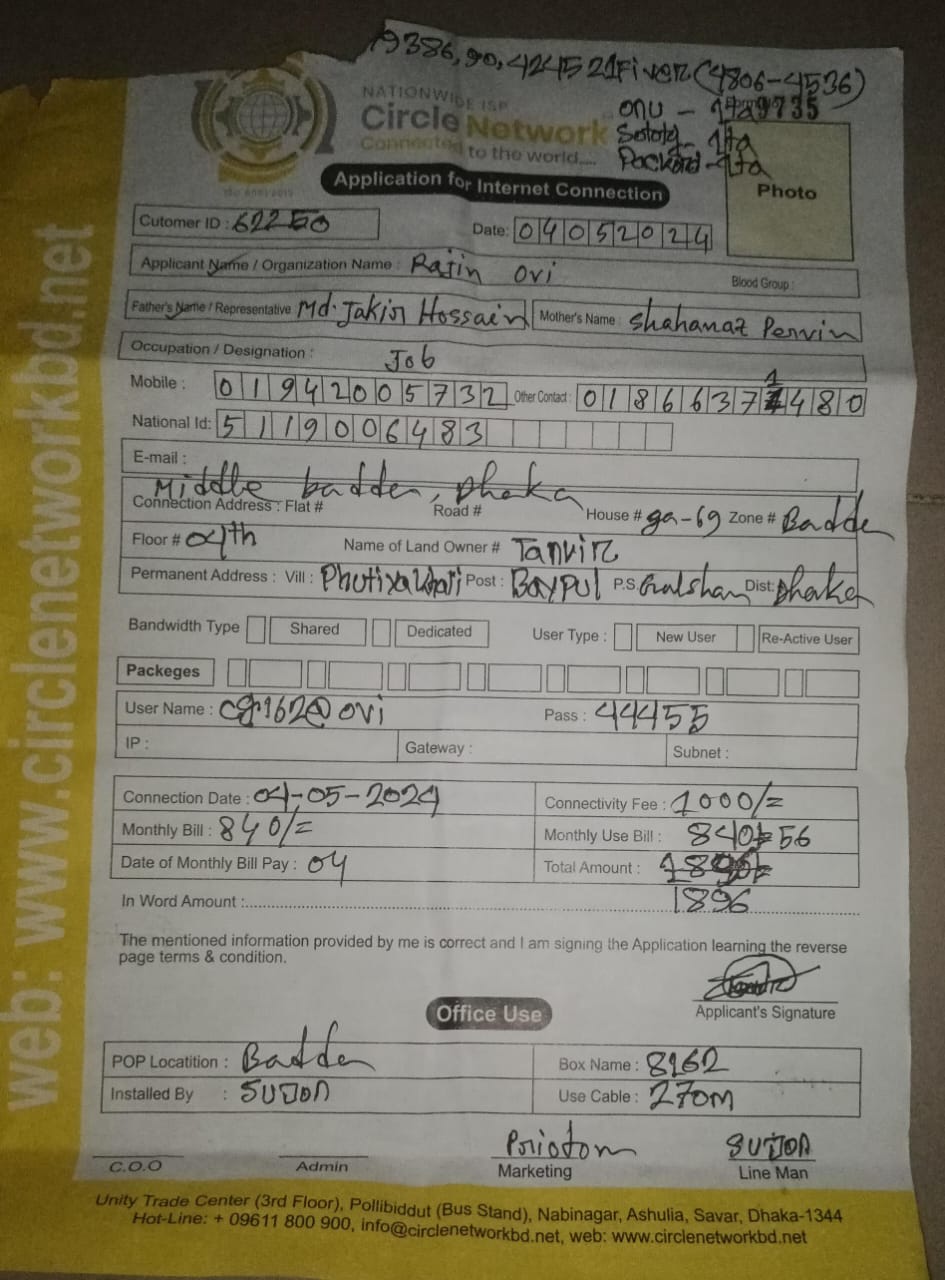 9386, 90, 424521Fiver (4806-4536)
NATIONWIDE ISP
Circle Network
Connected to the world.....
onu - 1729735
1ta
1ta
Photo
Application for Internet Connection
Cutomer ID : 62250 Date: 04052024
Applicant Name / Organization Name : Rajin ovi Blood Group :
Father's Name / Representative Md. Jakir Hossain Mother's Name : Shahanaz Pervin
Occupation / Designation : Job
Mobile : 01942005732 Other Contact : 01866371480
National Id: 5119006483
E-mail :
Middle badda, Dhaka
Connection Address : Flat # Road # House # ga-69 Zone # Badda
Floor # 04th Name of Land Owner # Tanvir
Permanent Address : Vill : Post : P.S. Gulshan Dist: Dhaka
Bandwidth Type Shared Dedicated User Type : New User Re-Active User
Packeges
User Name : @ovi Pass : 44455
IP : Gateway : Subnet :
Connection Date : 04-05-2024 Connectivity Fee : 1000/=
Monthly Bill : 840/= Monthly Use Bill : 840+56
Date of Monthly Bill Pay : 04 Total Amount :
In Word Amount :.......... 1896
The mentioned information provided by me is correct and I am signing the Application learning the reverse
page terms & condition.
Applicant's Signature
Office Use
POP Locatition : Badda Box Name : 8162
Installed By : SUJON Use Cable : 270m
C.O.O Admin Priotom Marketing SUJON Line Man
Unity Trade Center (3rd Floor), Pollibiddut (Bus Stand), Nabinagar, Ashulia, Savar, Dhaka-1344
Hot-Line: + 09611 800 900, info@circlenetworkbd.net, web: www.circlenetworkbd.net
web: www.circlenetworkbd.net